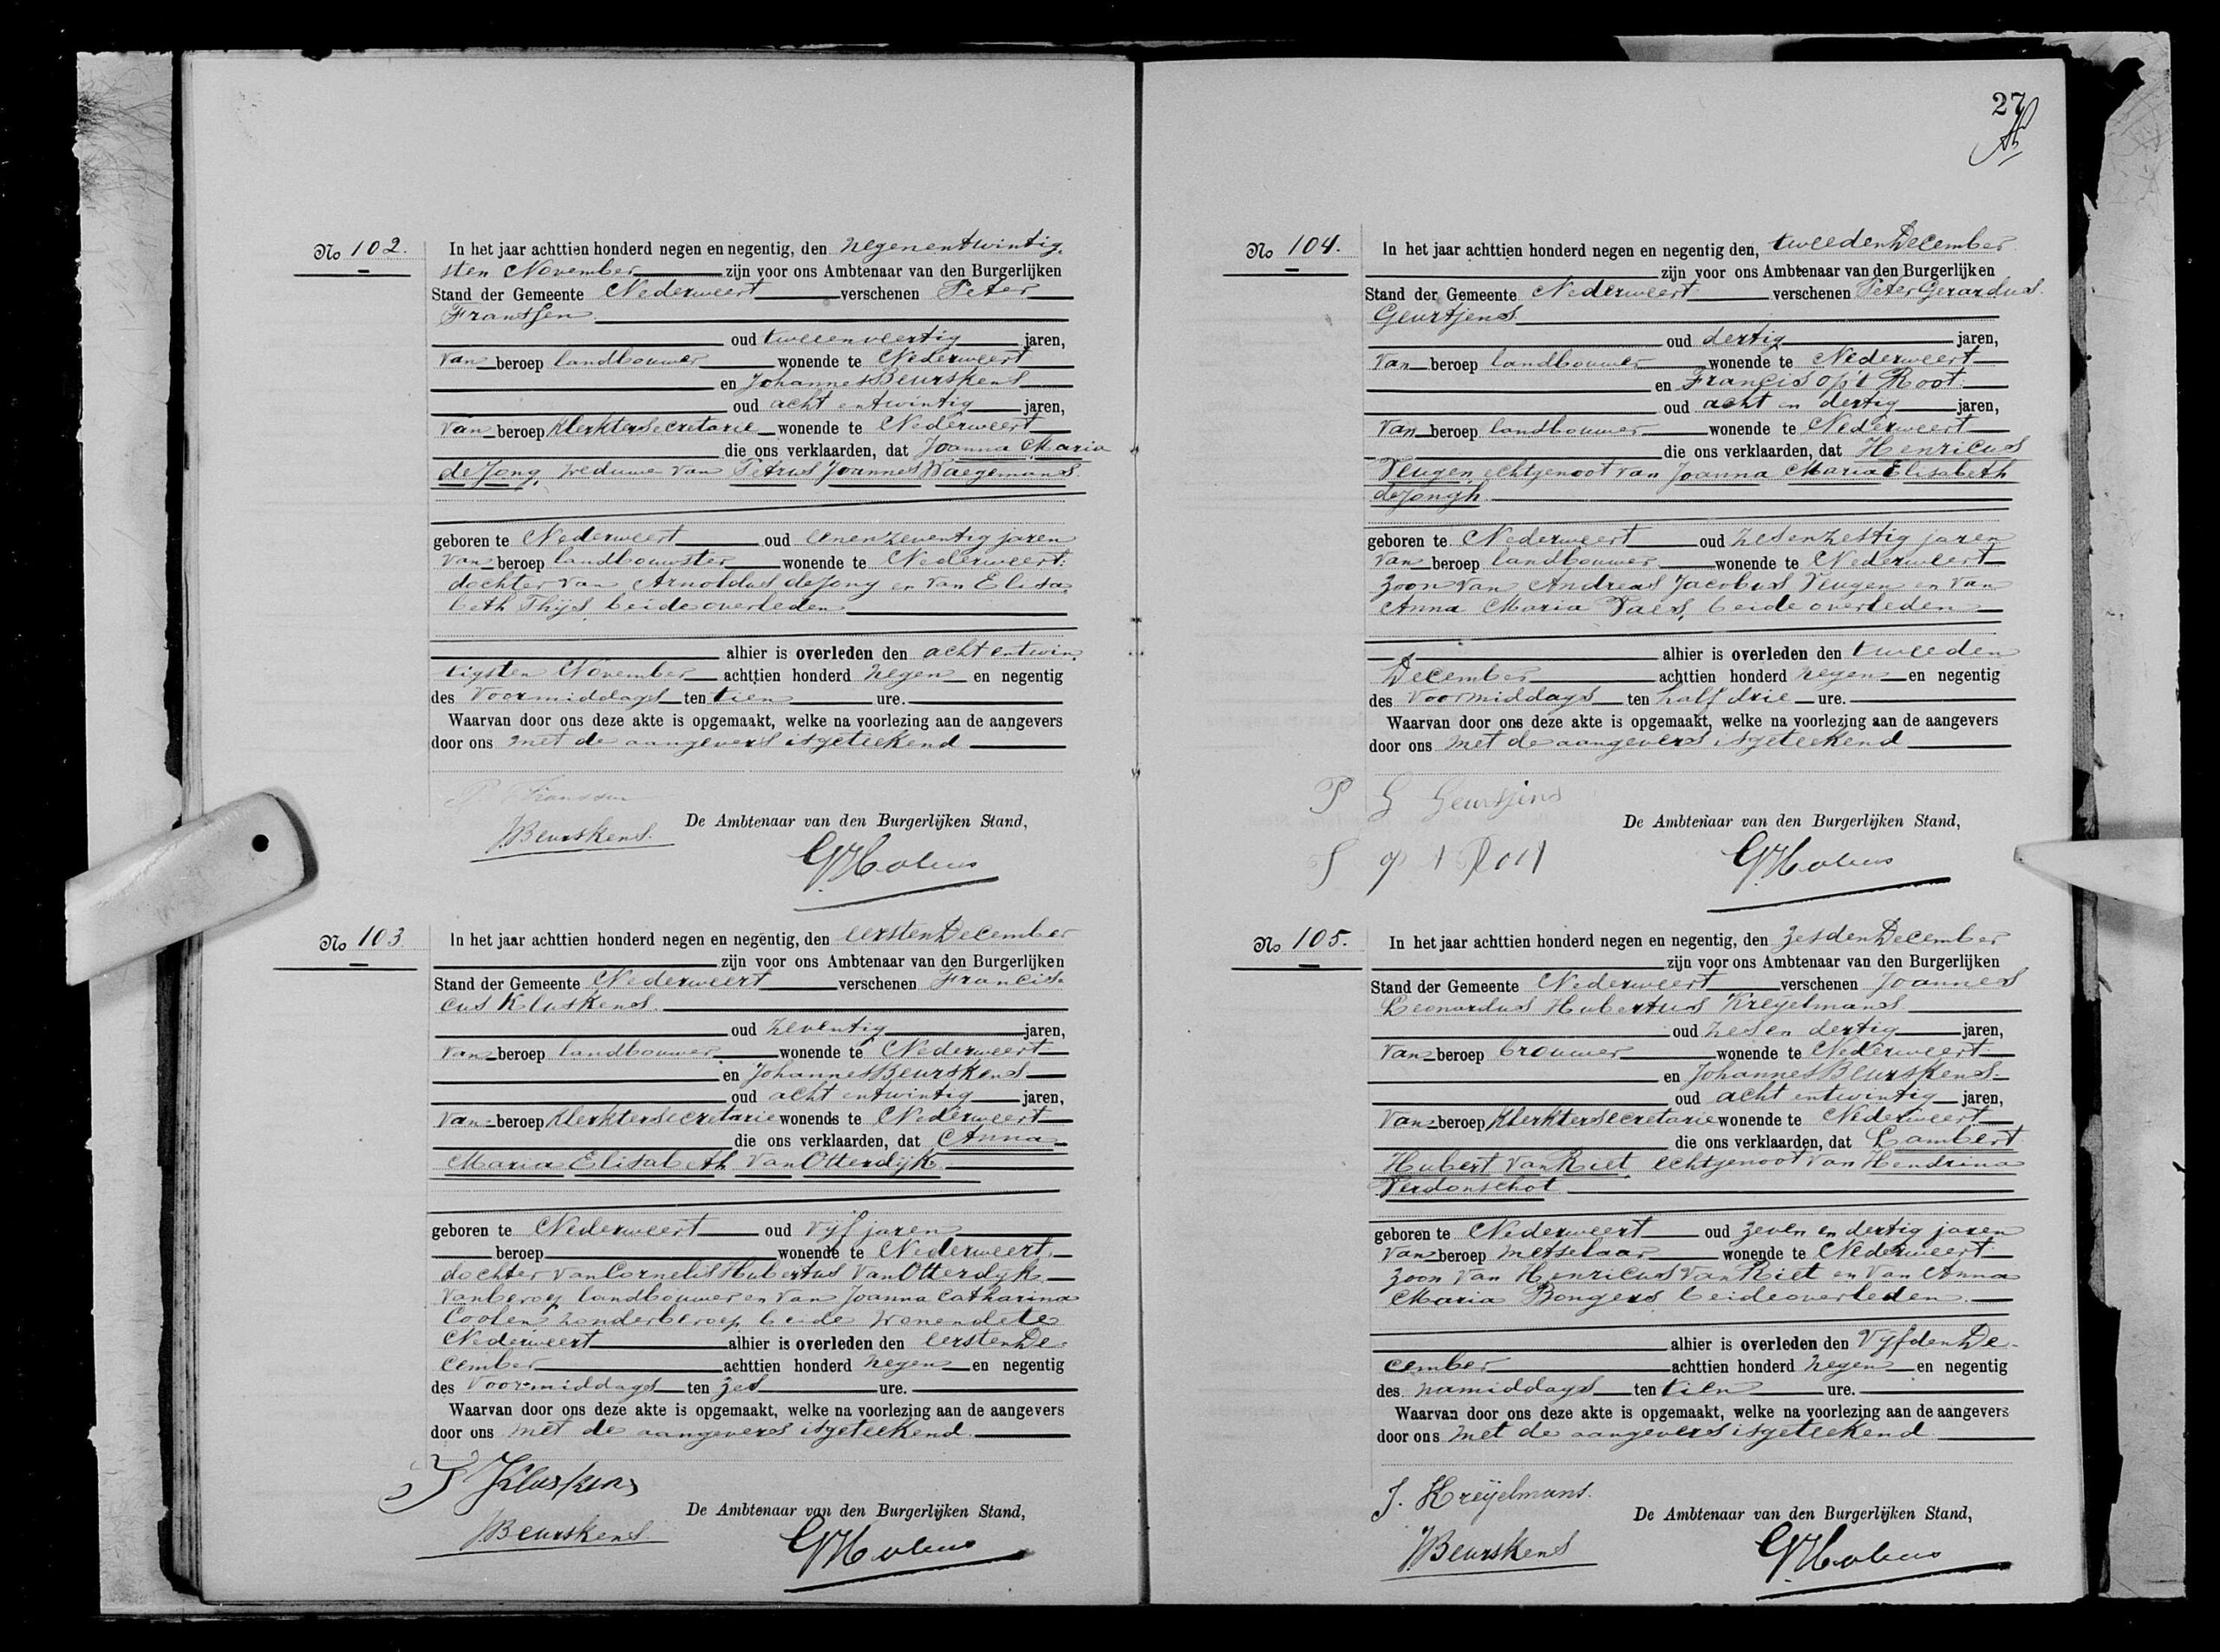 No 102.
In het jaar achttien honderd negen en negentig, den negenentwintig-
sten November zijn voor ons Ambtenaar van den Burgerlijken
Stand der Gemeente Nederweert verschenen Peter
Frantsen
oud tweeenveertig jaren,
van beroep landbouwer wonende te Nederweert
en Johannes Beurskens
oud acht entwintig jaren,
van beroep klerktersecretarie wonende te Nederweert
die ons verklaarden, dat Joanna Maria
de Jong, weduwe van Petrus Joannes Waegemans
geboren te Nederweert oud eenenzeventig jaren
van beroep landbouwster wonende te Nederweert
dochter van Arnoldus de Jong en van Elisa-
beth Thijs beide overleden
alhier is overleden den acht entwin-
tigsten November achttien honderd negen en negentig
des voormiddags ten tien ure.
Waarvan door ons deze akte is opgemaakt, welke na voorlezing aan de aangevers
door ons met de aangevers is geteekend
P. Franssen
De Ambtenaar van den Burgerlijken Stand,
JBeurskens.
No 103
In het jaar achttien honderd negen en negentig, den eersten December
zijn voor ons Ambtenaar van den Burgerlijken
Stand der Gemeente Nederweert verschenen Francis-
cus Kluskens.
oud zeventig jaren,
van beroep landbouwer wonende te Nederweert
en Johannes Beurskens
oud acht entwintig jaren,
van beroep klerktersecretarie wonende te Nederweert
die ons verklaarden, dat Anna
Maria Elisabeth van Otterdijk
geboren te Nederweert oud vijf jaren
beroep wonende te Nederweert,
dochter van Cornelis Hubertus van Otterdijk
van beroep landbouwer en van Joanna Catharina
Coolen zonder beroep beide wonende te
Nederweert alhier is overleden den eersten De-
cember achttien honderd negen en negentig
des voormiddags ten zes ure.
Waarvan door ons deze akte is opgemaakt, welke na voorlezing aan de aangevers
door ons met de aangevers is geteekend.
F Kluskens
De Ambtenaar van den Burgerlijken Stand,
JBeurskens.
27
No 104.
In het jaar achttien honderd negen en negentig den, tweeden December
zijn voor ons Ambtenaar van den Burgerlijken
Stand der Gemeente Nederweert verschenen Peter Gerardus
Geurtjens.
oud dertig jaren,
van beroep landbouwer wonende te Nederweert
en Francis op't Root
oud acht en dertig jaren,
van beroep landbouwer wonende te Nederweert
die ons verklaarden, dat Henricus
Veugen echtgenoot van Joanna Maria Elisabeth
de Jongh
geboren te Nederweert oud zesenzestig jaren
van beroep landbouwer wonende te Nederweert
zoon van Andreas Jacobus Veugen en van
Anna Maria Vaes, beide overleden
alhier is overleden den tweeden
December achttien honderd negen en negentig
des voormiddags ten half drie ure.
Waarvan door ons deze akte is opgemaakt, welke na voorlezing aan de aangevers
door ons met de aangevers is geteekend
P G Geurtjens
De Ambtenaar van den Burgerlijken Stand,
No 105.
In het jaar achttien honderd negen en negentig, den zesden December
zijn voor ons Ambtenaar van den Burgerlijken
Stand der Gemeente Nederweert verschenen Joannes
Leonardus Hubertus Kreijelmans
oud zesen dertig jaren,
van beroep brouwer wonende te Nederweert
en Johannes Beurskens
oud acht entwintig jaren,
van beroep klerktersecretarie wonende te Nederweert
die ons verklaarden, dat Lambert
Hubert van Riet echtgenoot van Hendrina
Verdonschot
geboren te Nederweert oud zeven en dertig jaren
van beroep metselaar wonende te Nederweert
zoon van Henricus van Riet en van Anna
Maria Bongers beide overleden.
alhier is overleden den vijfden De-
cember achttien honderd negen en negentig
des namiddags ten tien ure.
Waarvan door ons deze akte is opgemaakt, welke na voorlezing aan de aangevers
door ons met de aangevers is geteekend
J. Kreijelmans.
De Ambtenaar van den Burgerlijken Stand,
JBeurskens